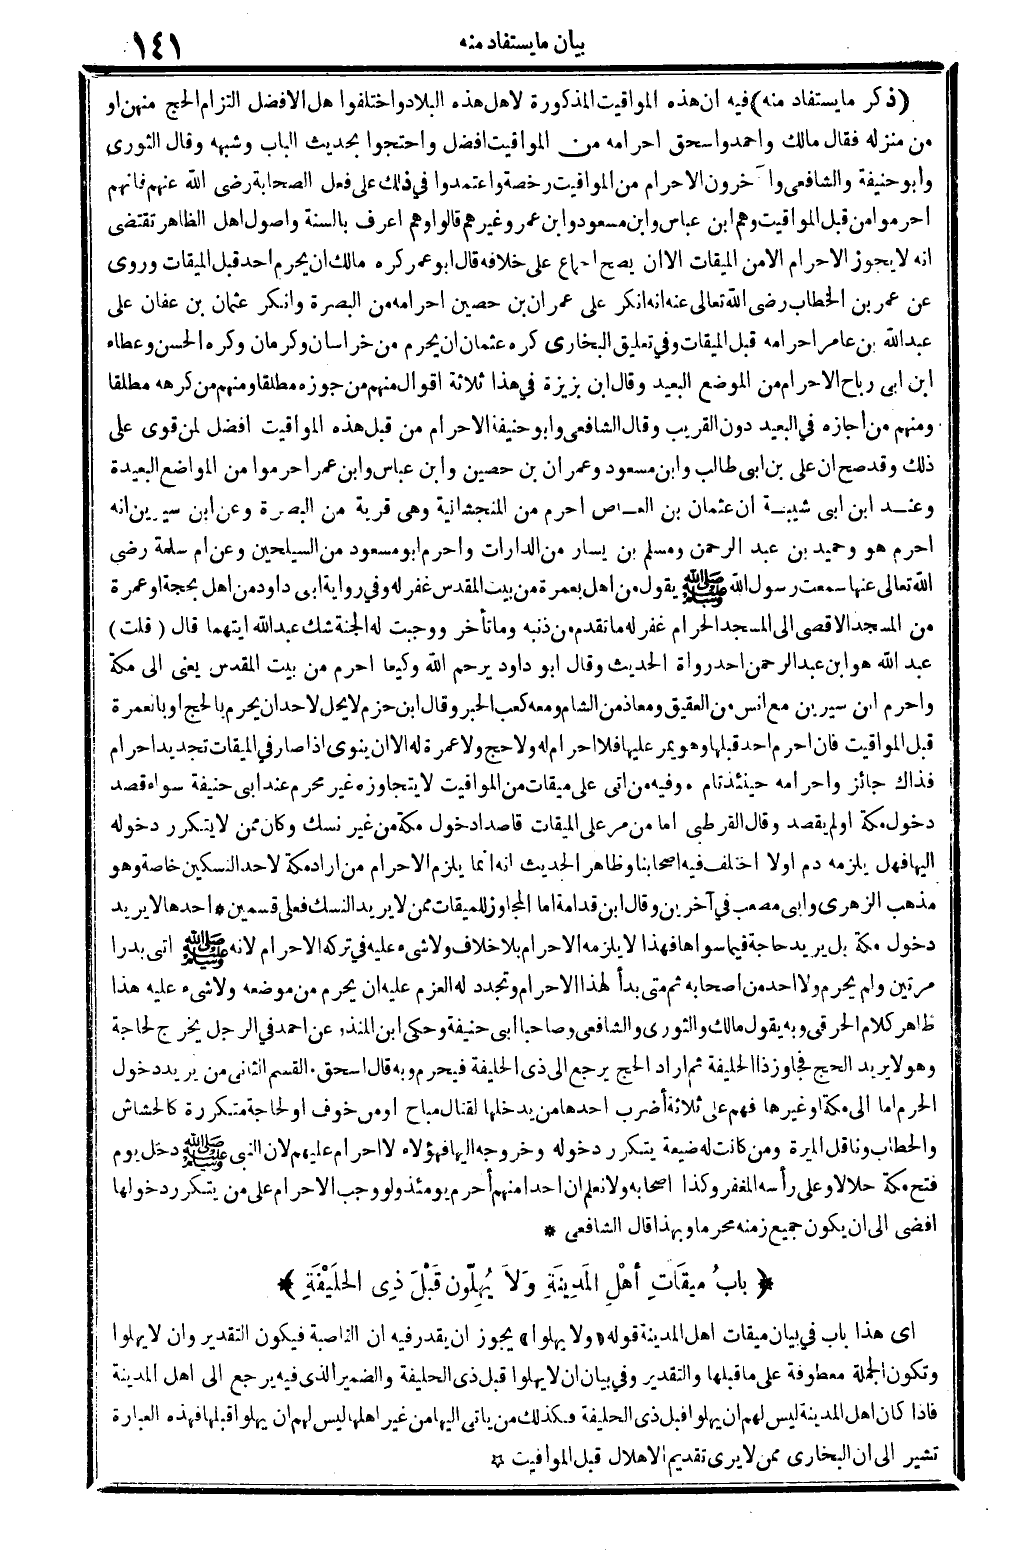 بيان ما يستفاد منه
١٤١
(ذكر ما يستفاد منه) فيه ان هذه المواقيت المذكورة لاهل هذه البلاد واختلفوا هل الافضل التزام الحج منهن او
من منزله فقال مالك واحمد واسحق احرامه من المواقيت افضل واحتجوا بحديث الباب وشبهه وقال الثورى
وابو حنيفة والشافعى وآخرون الاحرام من المواقيت رخصة واعتمدوا في ذلك على فعل الصحابة رضى الله عنهم فانهم
احرموا من قبل المواقيت وهم ابن عباس وابن مسعود وابن عمر وغيرهم قالوا وهم اعرف بالسنة واصول اهل الظاهر تقتضى
انه لا يجوز الاحرام الا من الميقات الا ان يصح اجماع على خلافه قال ابو عمر كره مالك ان يحرم احد قبل الميقات وروى
عن عمر بن الخطاب رضى الله تعالى عنه انه انكر على عمران بن حصين احرامه من البصرة وانكر عثمان بن عفان على
عبدالله بن عامر احرامه قبل الميقات وفي تعليق البخارى كره عثمان ان يحرم من خراسان وكرمان وكره الحسن وعطاء
ابن ابى رباح الاحرام من الموضع البعيد وقال ابن بزيزة في هذا ثلاثة اقوال منهم من جوزه مطلقا ومنهم من كرهه مطلقا
ومنهم من أجازه في البعيد دون القريب وقال الشافعى وابو حنيفة الاحرام من قبل هذه المواقيت افضل لمن قوى على
ذلك وقد صح ان على بن ابى طالب وابن مسعود وعمران بن حصين وابن عباس وابن عمر احرموا من المواضع البعيدة
وعند ابن ابى شيبة ان عثمان بن العاص احرم من المنجشانية وهى قرية من البصرة وعن ابن سيرين انه
احرم هو وحميد بن عبد الرحمن ومسلم بن يسار من الدارات واحرم ابو مسعود من السيلحين وعن ام سلمة رضى
الله تعالى عنها سمعت رسول الله ﷺ يقول من اهل بعمرة من بيت المقدس غفر له وفي رواية ابى داود من اهل بحجة او عمرة
من المسجد الاقصى الى المسجد الحرام غفر له ما تقدم من ذنبه وما تأخر ووجبت له الجنة شك عبدالله ايتهما قال (قلت)
عبد الله هو ابن عبد الرحمن احد رواة الحديث وقال ابو داود يرحم الله وكيعا احرم من بيت المقدس يعنى الى مكة
واحرم ابن سيرين مع انس من العقيق ومعاذ من الشام ومعه كعب الحبر وقال ابن حزم لا يحل لاحد ان يحرم بالحج او بالعمرة
قبل المواقيت فان احرم احد قبلها وهو يمر عليها فلا احرام له ولا حج ولا عمرة له الا ان ينوى اذا صار في الميقات تجديد احرام
فذاك جائز واحرامه حينئذ تام . وفيه من اتى على ميقات من المواقيت لا يتجاوزه غير محرم عند ابى حنيفة سواء قصد
دخول مكة او لم يقصد وقال القرطبى اما من مر على الميقات قاصدا دخول مكة من غير نسك وكان ممن لا يتكرر دخوله
اليها فهل يلزمه دم اولا اختلف فيه اصحابنا وظاهر الحديث انه انما يلزم الاحرام من اراد مكة لاحد النسكين خاصة وهو
مذهب الزهرى وابى مصعب في آخرين وقال ابن قدامة اما المجاوز للميقات ممن لا يريد النسك فعلى قسمين * احدها لا يريد
دخول مكة بل يريد حاجة فيما سواها فهذا لا يلزمه الاحرام بلا خلاف ولا شىء عليه في تركه الاحرام لانه ﷺ اتى بدرا
مرتين ولم يحرم ولا احد من اصحابه ثم متى بدأ لهذا الاحرام وتجدد له العزم عليه ان يحرم من موضعه ولا شىء عليه هذا
ظاهر كلام الخرقى وبه يقول مالك والثورى والشافعى وصاحبا ابى حنيفة وحكى ابن المنذر عن احمد في الرجل يخرج لحاجة
وهو لا يريد الحج فجاوز ذا الحليفة ثم اراد الحج يرجع الى ذى الحليفة فيحرم وبه قال اسحق . القسم الثانى من يريد دخول
الحرم اما الى مكة او غيرها فهم على ثلاثة أضرب احدها من يدخلها لقتال مباح او من خوف او لحاجة متكررة كالحشاش
والحطاب وناقل الميرة ومن كانت له ضيعة يتكرر دخوله وخروجه اليها فهؤلاء لا احرام عليهم لان النبى ﷺ دخل يوم
فتح مكة حلالا وعلى رأسه المغفر وكذا اصحابه ولا نعلم ان احدا منهم أحرم يومئذ ولو وجب الاحرام على من يتكرر دخولها
افضى الى ان يكون جميع زمنه محرما وبهذا قال الشافعى *
﴿ بابُ ميقَاتِ أهْلِ المَدِينَةِ وَلاَ يُهِلّون قَبْلَ ذِى الحُلَيْفَةِ ﴾
اى هذا باب في بيان ميقات اهل المدينة قوله «ولا يهلوا» يجوز ان يقدر فيه ان الناصبة فيكون التقدير وان لا يهلوا
وتكون الجملة معطوفة على ما قبلها والتقدير وفي بيان ان لا يهلوا قبل ذى الحليفة والضمير الذى فيه يرجع الى اهل المدينة
فاذا كان اهل المدينة ليس لهم ان يهلوا قبل ذى الحليفة فكذلك من ياتى اليها من غير اهلها ليس لهم ان يهلوا قبلها فهذه العبارة
تشير الى ان البخارى ممن لا يرى تقديم الاهلال قبل المواقيت *